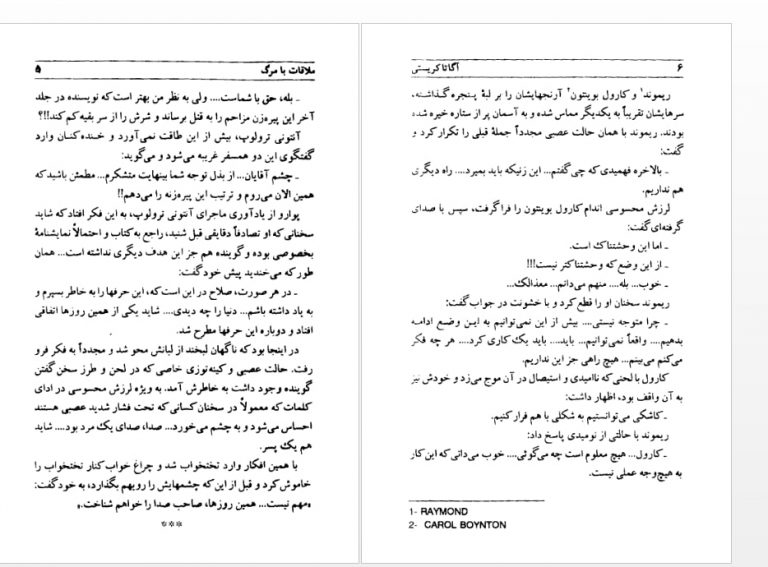 ملاقات با مرگ ۵
ـ بله، حق با شماست.... ولی به نظر من بهتر است که نویسنده در جلد
آخر این پیره‌زن مزاحم را به قتل برساند و شرش را از سر بقیه کم کند!!؟
آنتونی ترولوپ، بیش از این طاقت نمی‌آورد و خنده‌کنان وارد
گفتگوی این دو همسفر غریبه می‌شود و می‌گوید:
ـ چشم آقایان... از بذل توجه شما بینهایت متشکرم... مطمئن باشید که
همین الان می‌روم و ترتیب این پیره‌زنه را می‌دهم!!
پوآرو از یادآوری ماجرای آنتونی ترولوپ، به این فکر افتاد که شاید
سخنانی که او تصادفاً دقایقی قبل شنید، راجع به کتاب و احتمالاً نمایشنامهٔ
بخصوصی بوده و گوینده هم جز این هدف دیگری نداشته است... همان
طور که می‌خندید پیش خود گفت:
ـ در هر صورت، صلاح در این است که، این حرفها را به خاطر بسپرم و
به یاد داشته باشم... دنیا را چه دیدی.... شاید یکی از همین روزها اتفاقی
افتاد و دوباره این حرفها مطرح شد.
در اینجا بود که ناگهان لبخند از لبانش محو شد و مجدداً به فکر فرو
رفت. حالت عصبی و کینه‌توزی خاصی که در لحن و طرز سخن گفتن
گوینده وجود داشت به خاطرش آمد. به ویژه لرزش محسوسی در ادای
کلمات که معمولاً در سخنان کسانی که تحت فشار شدید عصبی هستند
احساس می‌شود و به چشم می‌خورد... صدا، صدای یک مرد بود.... شاید
هم یک پسر.
با همین افکار وارد تختخواب شد و چراغ خواب کنار تختخواب را
خاموش کرد و قبل از این که چشمهایش را رویهم بگذارد، به خود گفت:
«مهم نیست... همین روزها، صاحب صدا را خواهم شناخت.»
***
۶ آگاتا کریستی
ریموند۱ و کارول بوینتون۲ آرنجهایشان را بر لبهٔ پنجره گذاشته،
سرهایشان تقریباً به یکدیگر مماس شده و به آسمان پر از ستاره خیره شده
بودند. ریموند با همان حالت عصبی مجدداً جملهٔ قبلی را تکرار کرد و
گفت:
ـ بالاخره فهمیدی که چی گفتم... این زنیکه باید بمیرد.... راه دیگری
هم نداریم.
لرزش محسوسی اندام کارول بوینتون را فرا گرفت، سپس با صدای
گرفته‌ای گفت:
ـ اما این وحشتناک است.
ـ از این وضع که وحشتناکتر نیست!!!
ـ خوب... بله.... منهم می‌دانم... معذالک...
ریموند سخنان او را قطع کرد و با خشونت در جواب گفت:
ـ چرا متوجه نیستی.... بیش از این نمی‌توانیم به ایـن وضـع ادامـه
بدهیم.... واقعاً نمی‌توانیم... باید.... باید یک کاری کرد.... هر چه فکر
می‌کنم می‌بینم... هیچ راهی جز این نداریم.
کارول با لحنی که ناامیدی و استیصال در آن موج می‌زد و خودش نیز
به آن واقف بود، اظهار داشت:
ـ کاشکی می‌توانستیم به شکلی با هم فرار کنیم.
ریموند با حالتی از نومیدی پاسخ داد:
ـ کارول... هیچ معلوم است چه می‌گوئی.... خوب می‌دانی که این کار
به هیچ‌وجه عملی نیست.
1- RAYMOND
2- CAROL BOYNTON